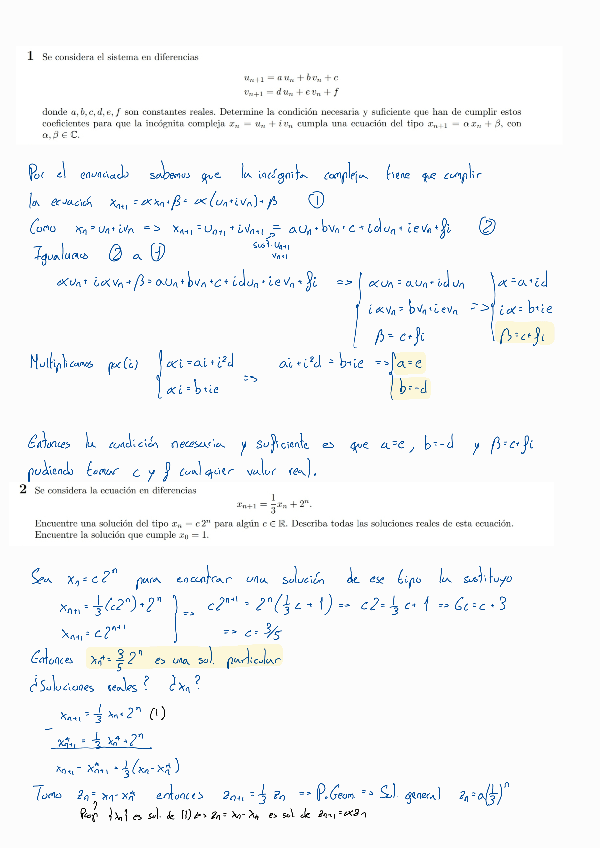 1 Se considera el sistema en diferencias
u_{n+1} = a u_n + b v_n + c
v_{n+1} = d u_n + e v_n + f
donde a, b, c, d, e, f son constantes reales. Determine la condición necesaria y suficiente que han de cumplir estos
coeficientes para que la incógnita compleja x_n = u_n + i v_n cumpla una ecuación del tipo x_{n+1} = α x_n + β, con
α, β ∈ ℂ.
Por el enunciado sabemos que la incógnita compleja tiene que cumplir
la ecuación x_{n+1} = αx_n + β = α(u_n+iv_n) + β ①
Como x_n = u_n+iv_n => x_{n+1} = u_{n+1} + iv_{n+1} = au_n + bv_n + c + idu_n + iev_n + fi ②
sust. u_{n+1}
v_{n+1}
Igualamos ② a ①
αu_n + iαv_n + β = au_n + bv_n + c + idu_n + iev_n + fi => { αu_n = au_n + idu_n { α = a+id
iαv_n = bv_n + iev_n => iα = b+ie
β = c+fi β = c+fi
Multiplicamos por (i) { αi = ai + i²d => ai + i²d = b+ie => { a = e
αi = b+ie b = -d
Entonces la condición necesaria y suficiente es que a=e, b=-d y β = c+fi
pudiendo tomar c y f cualquier valor real.
2 Se considera la ecuación en diferencias
x_{n+1} = 1/3 x_n + 2^n.
Encuentre una solución del tipo x_n = c 2^n para algún c ∈ ℝ. Describa todas las soluciones reales de esta ecuación.
Encuentre la solución que cumple x_0 = 1.
Sea x_n = c2^n para encontrar una solución de ese tipo la sustituyo
x_{n+1} = 1/3 (c2^n) + 2^n } => c2^{n+1} = 2^n (1/3 c + 1) => c2 = 1/3 c + 1 => 6c = c + 3
x_{n+1} = c2^{n+1} => c = 3/5
Entonces x_n^* = 3/5 2^n es una sol. particular
¿Soluciones reales? ¿x_n?
x_{n+1} = 1/3 x_n + 2^n (1)
- x_{n+1}^* = 1/3 x_n^* + 2^n
x_{n+1} - x_{n+1}^* = 1/3 (x_n - x_n^*)
Tomo z_n = x_n - x_n^* entonces z_{n+1} = 1/3 z_n => P. Geom. => Sol. general z_n = a(1/3)^n
Prop {x_n} es sol. de (1) <=> z_n = x_n - x_n es sol de z_{n+1} = αz_n